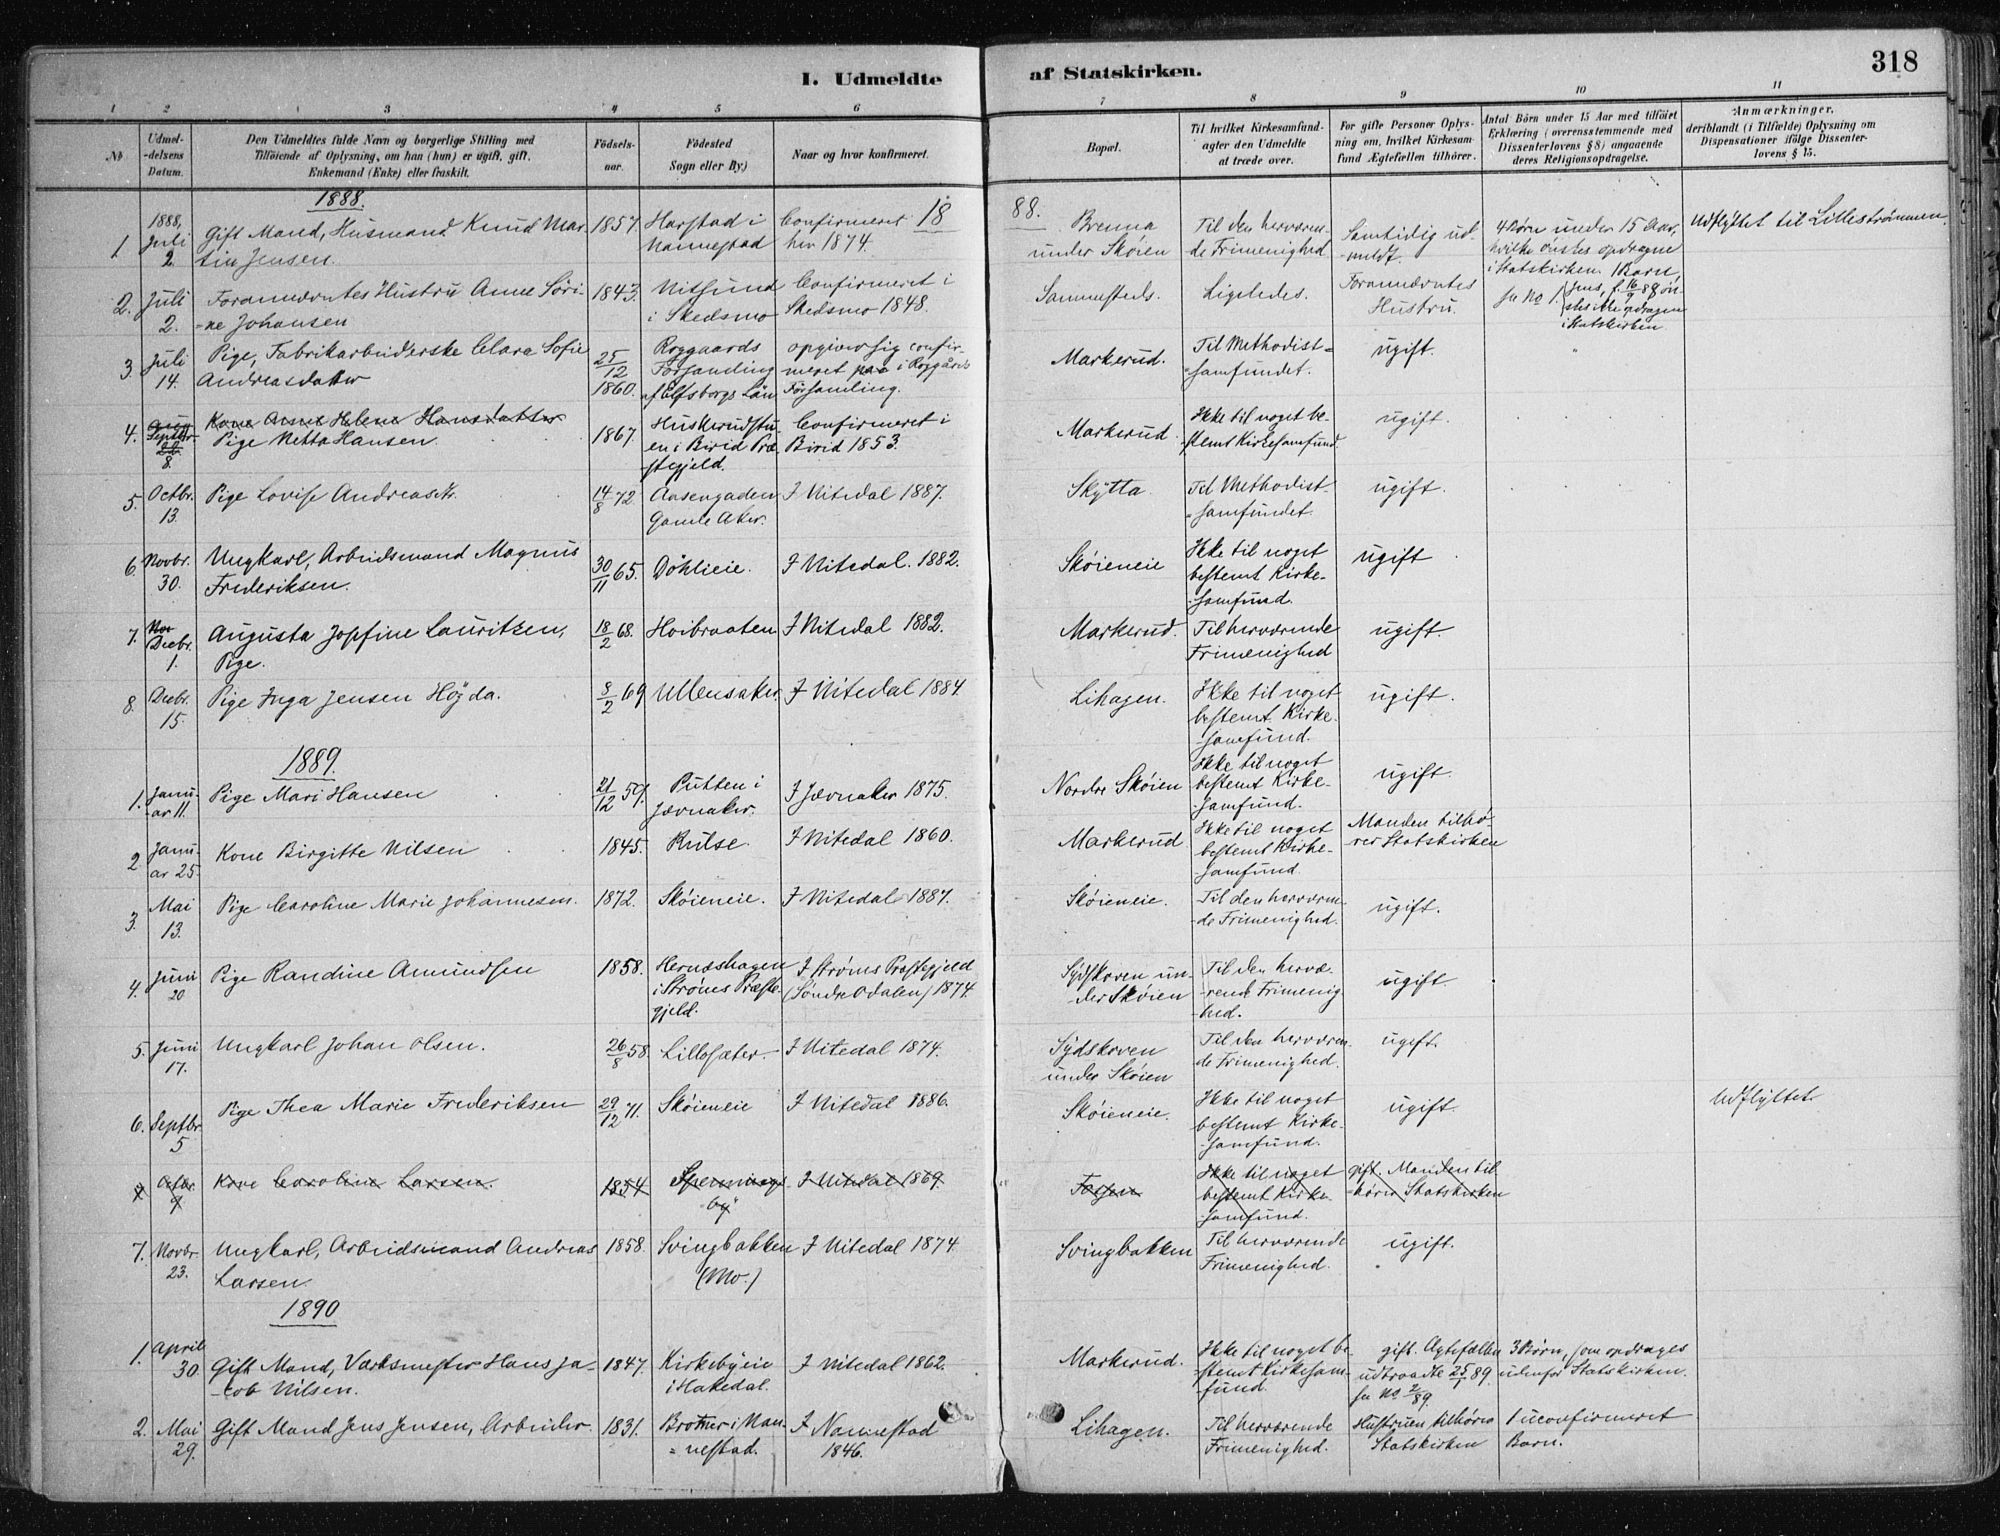 318
I. Udmeldte af Statskirken.
1 2 3 4 5 6 7 8 9 10 11
No
Udmel-
-delsens
Datum.
Den Udmeldtes fulde Navn og borgerlige Stilling med
Tilföiende af Oplysning, om han (hun) er ugift, gift,
Enkemand (Enke) eller fraskilt.
Födsels-
aar.
Födested
Sogn eller By.)
Naar og hvor konfirmeret.
Bopæl.
Til hvilket Kirkesamfund-
agter den Udmeldte
at træde over.
For gifte Personer Oplys-
ning om, hvilket Kirkesam-
fund Ægtefællen tilhörer.
Antal Börn under 15 Aar med tilföiet
Erklæring (overensstemmende med
Dissenterlovens § 8) angaaende
deres Religionsopdragelse.
Anmærkninger,
deriblandt (i Tilfælde) Oplysning om
Dispensationer ifölge Dissenter-
lovens § 15.
1888.
18 88.
1. 1888, Juli 2. Gift Mand, Husmand Knud Mar-
tin Jensen. 1857. Harstad i
Nannestad Confirmeret
her 1874. Brenna
under Skøien Til den herværen-
de Frimenighed Samtidig ud-
meldt. 4 Børn under 15 Aar,
hvilke ønskes opdragne
i Statskirken. 1 Barn, Udflyttet til Lillestrømmen.
2. Juli 2. Forannævntes Hustru Anne Søri-
-ne Johansen 1843. Nitsund
i Skedsmo Confirmeret i
Skedsmo 1848. Sammesteds. Ligeledes. Forannævntes
Hustru. Jens, f. 16/9 88 øn-
skes ikke opdragen
i Statskirken.
3. Juli 14. Pige, Fabrikarbeiderske Clara Sofie
Andreasdatter 25/12 1860. Roggaards
Forsamling
af Elfsborgs Län opgiver sig confir-
meret i Roggårds
Församling. Markerud. Til Methodist-
-samfundet. ugift.
4. Septbr. 8. Kone Anne Helene Hansdatter
Pige Netta Hansen. 1867. Huskerudstu-
en i Birid Præ-
stegjeld. Confirmeret i
Birid 1853. Markerud. Ikke til noget be-
stemt Kirkesamfund. ugift.
5. Octbr. 13. Pige Lovise Andreasdtr. 14/8 72 Aasengaden
Gamle Aker. I Nitedal 1887. Skÿtta. Til Methodist-
-samfundet. ugift.
6. Novbr. 30. Ungkarl, Arbeidsmand Magnus
Frederiksen. 30/11 65. Döhlieie. I Nitedal. 1882. Skøieneie Ikke til noget
bestemt Kirke-
-samfund. ugift
7. Nov Decbr. 1. Augusta Josefine Lauritzen,
Pige. 18/2 68. Høibraaten I Nitedal 1882. Markerud. Til herværende
Frimenighed ugift.
8. Decbr. 15. Pige Inga Jensen Højda. 8/2 69 Ullensaker. I Nitedal 1884 Lihagen. Ikke til noget
bestemt Kirke-
-samfund. ugift.
1889.
1. Janu-
ar 11. Pige Mari Hansen 21/12 59. Putten i
Jævnaker. I Jævnaker 1875. Nordre Skøien Ikke til noget
bestemt Kirke-
-samfund. ugift.
2 Janu-
ar 25. Kone Birgitte Nilsen 1845. Rulse. I Nitedal 1860. Markerud Ikke til noget
bestemt Kirke-
-samfund. Manden tilhø-
rer Statskirken
3. Mai 13. Pige Caroline Marie Johannesen. 1872. Skøieneie. I Nitedal 1887. Skøieneie. Til den herværen-
de Frimenighed. ugift.
4. Juni 20 Pige Randine Amundsen 1858. Herneshagen
i Strøms Præste-
gjeld. I Strøms Præstegjeld
(Søndre Odalen) 1874. Sÿdskoven un-
der Skøien Til den hervæ-
rende Frimenig-
-hed. ugift.
5. Juni 17. Ungkarl Johan Olsen. 26/8 58. Lillesæter. I Nitedal 1874. Sÿdskoven
under Skøien Til den herværen-
de Frimenighed. ugift.
6. Septbr. 5 Pige Thea Marie Frederiksen 29/12 71. Skøieneie I Nitedal 1886. Skøieneie. Ikke til noget
bestemt Kirke-
-samfund. ugift. Udflÿttet.
7 Octbr. 9 Kone Caroline Larsen. 1854 Spennings-
bÿ I Nitedal 1869. Fossen Ikke til noget
bestemt Kirke-
-samfund. gift. Manden til-
hører Statskirken
7. Novbr. 23. Ungkarl, Arbeidsmand Andreas
Larsen. 1858. Svingbakken
(Mo.) I Nitedal 1874. Svingbakken Til herværende
Frimenighed. ugift.
1890
1. April 30. Gift Mand, Værksmester Hans Ja-
-cob Nilsen. 1847. Kirkebÿeie
i Hakedal. I Nitedal 1862. Markerud. Ikke til noget be-
stemt Kirkesam-
fund. gift. Ægtefællen
udtraadte 25/1 89.
se No 2/89. 3 Børn, som opdrages
udenfor Statskirken.
2. Mai 29. Gift Mand Jens Jensen, Arbeider. 1831. Brotner i Nan-
-nestad. I Nannestad
1846. Lihagen. Til herværende
Frimenighed. Hustruen tilhører
Statskirken 1 uconfirmeret
Barn.